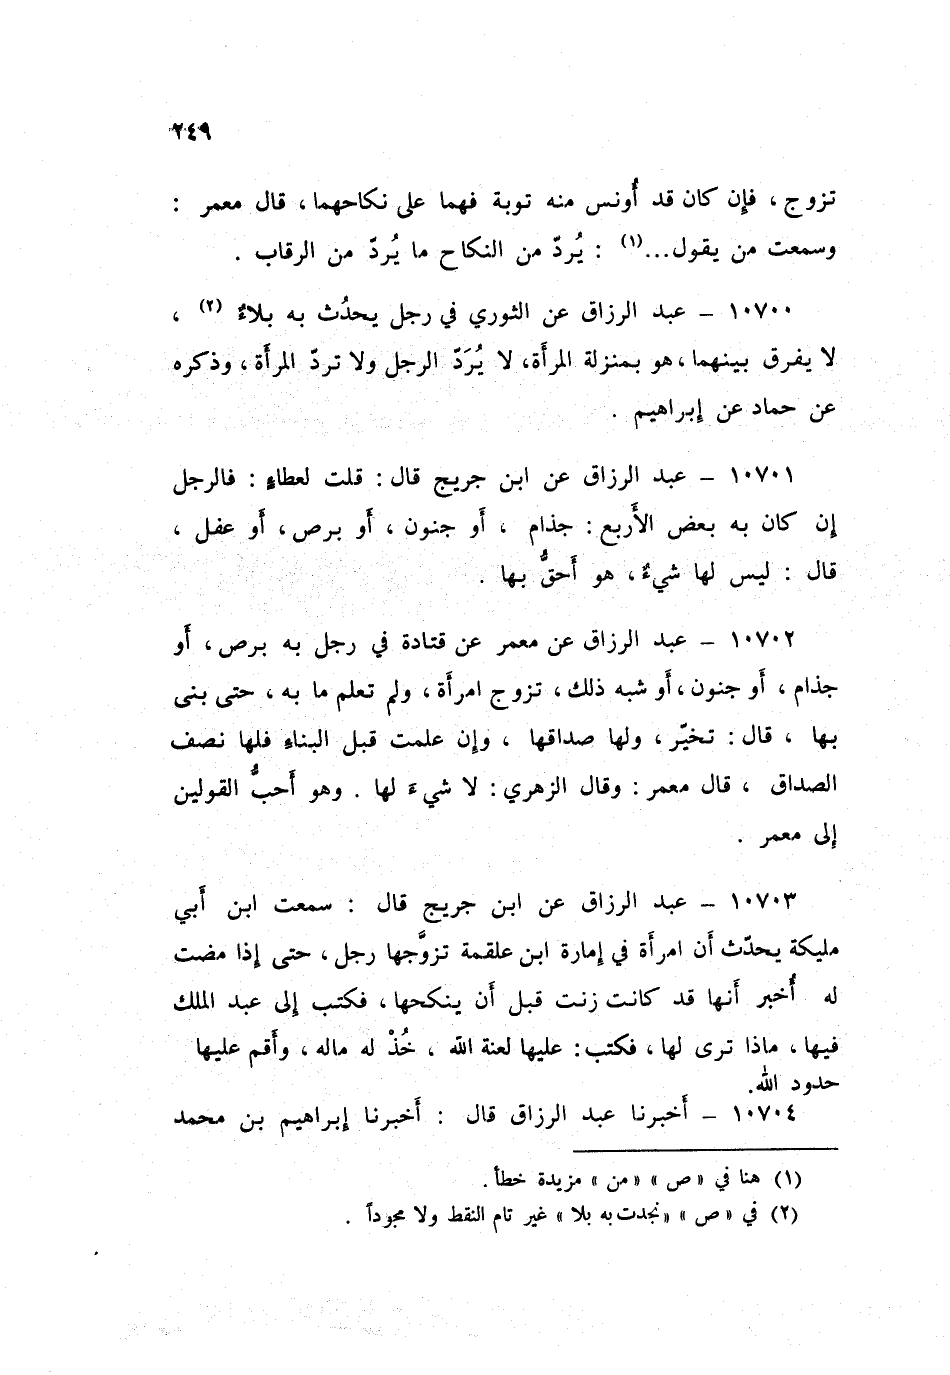 ٢٤٩
تزوج ، فإن كان قد أُونس منه توبة فهما على نكاحهما ، قال معمر :
وسمعت من يقول...(١) : يُردّ من النكاح ما يُردّ من الرقاب .
١٠٧٠٠ – عبد الرزاق عن الثوري في رجل يحدُث به بلاءٌ (٢) ،
لا يفرق بينهما ، هو بمنزلة المرأة، لا يُرَدّ الرجل ولا تردّ المرأة ، وذكره
عن حماد عن إبراهيم .
١٠٧٠١ – عبد الرزاق عن ابن جريج قال : قلت لعطاءٍ : فالرجل
إن كان به بعض الأربع : جذام ، أو جنون ، أو برص ، أو عفل ،
قال : ليس لها شيءٌ ، هو أحقُّ بها .
١٠٧٠٢ – عبد الرزاق عن معمر عن قتادة في رجل به برص ، أو
جذام ، أو جنون ، أو شبه ذلك ، تزوج امرأة ، ولم تعلم ما به ، حتى بنى
بها ، قال : تخيّر ، ولها صداقها ، وإن علمت قبل البناءِ فلها نصف
الصداق ، قال معمر : وقال الزهري : لا شيءَ لها . وهو أحبُّ القولين
إلى معمر .
١٠٧٠٣ – عبد الرزاق عن ابن جريج قال : سمعت ابن أبي
مليكة يحدّث أن امرأة في إمارة ابن علقمة تزوَّجها رجل ، حتى إذا مضت
له أُخبر أنها قد كانت زنت قبل أن ينكحها ، فكتب إلى عبد الملك
فيها ، ماذا ترى لها ، فكتب : عليها لعنة الله ، خُذْ له ماله ، وأقم عليها
حدود الله.
١٠٧٠٤ – أخبرنا عبد الرزاق قال : أخبرنا إبراهيم بن محمد
(١) هنا في « ص » « من » مزيدة خطأ .
(٢) في « ص » « نجدت به بلا » غير تام النقط ولا مجوداً .